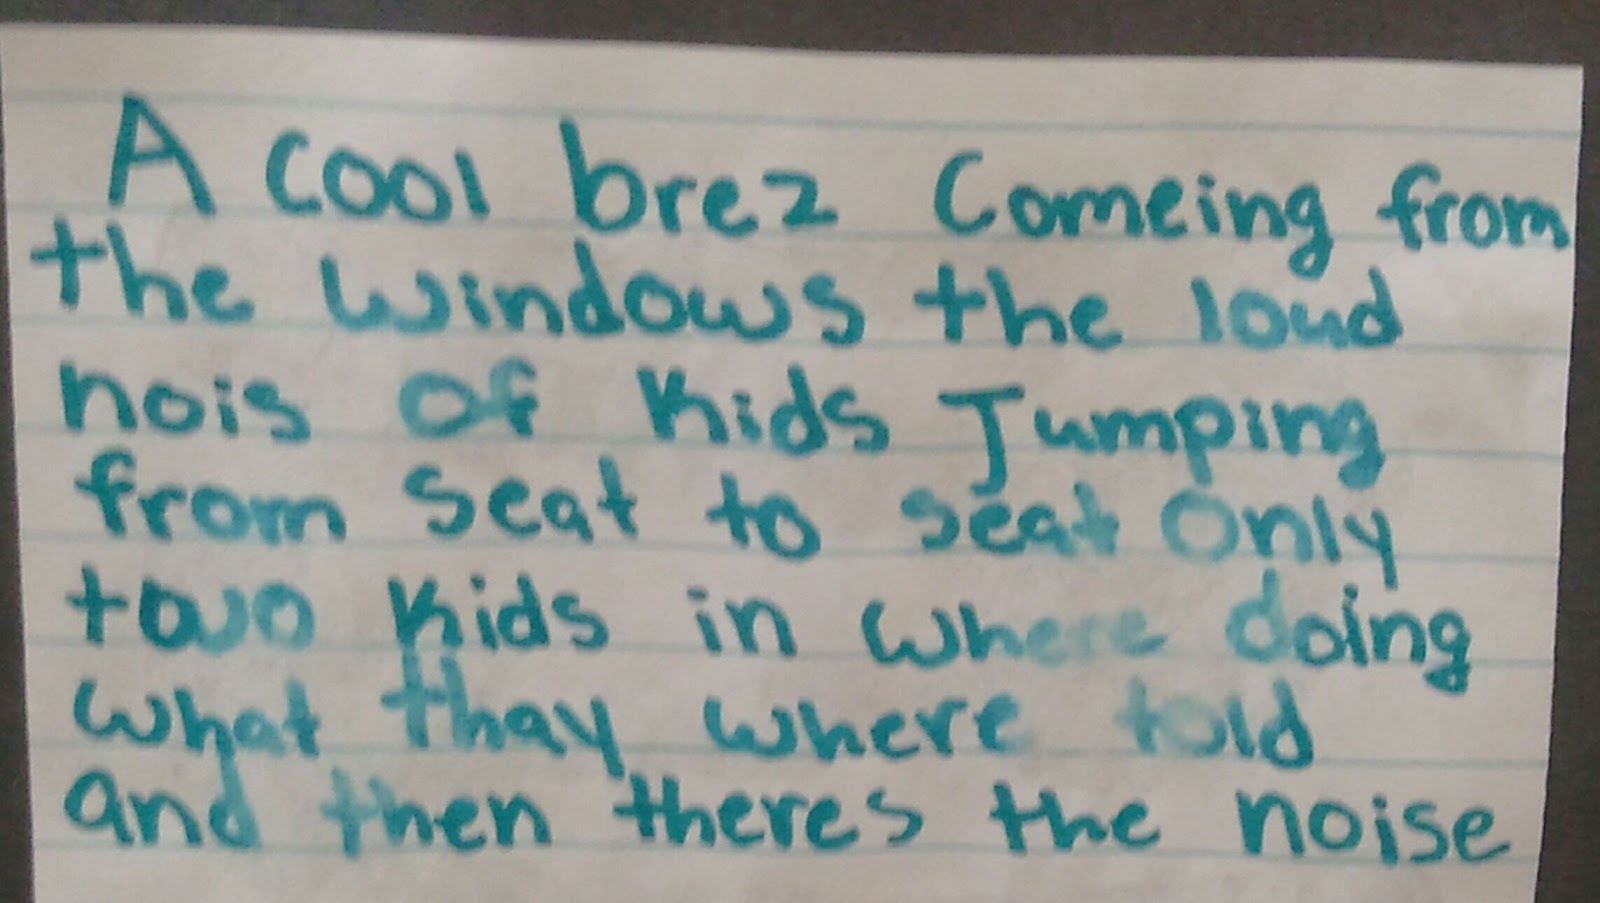 A cool brez Comeing from
the windows the loud
nois of Kids Jumping
from seat to seat Only
two Kids in where doing
what thay where told
and then theres the noise